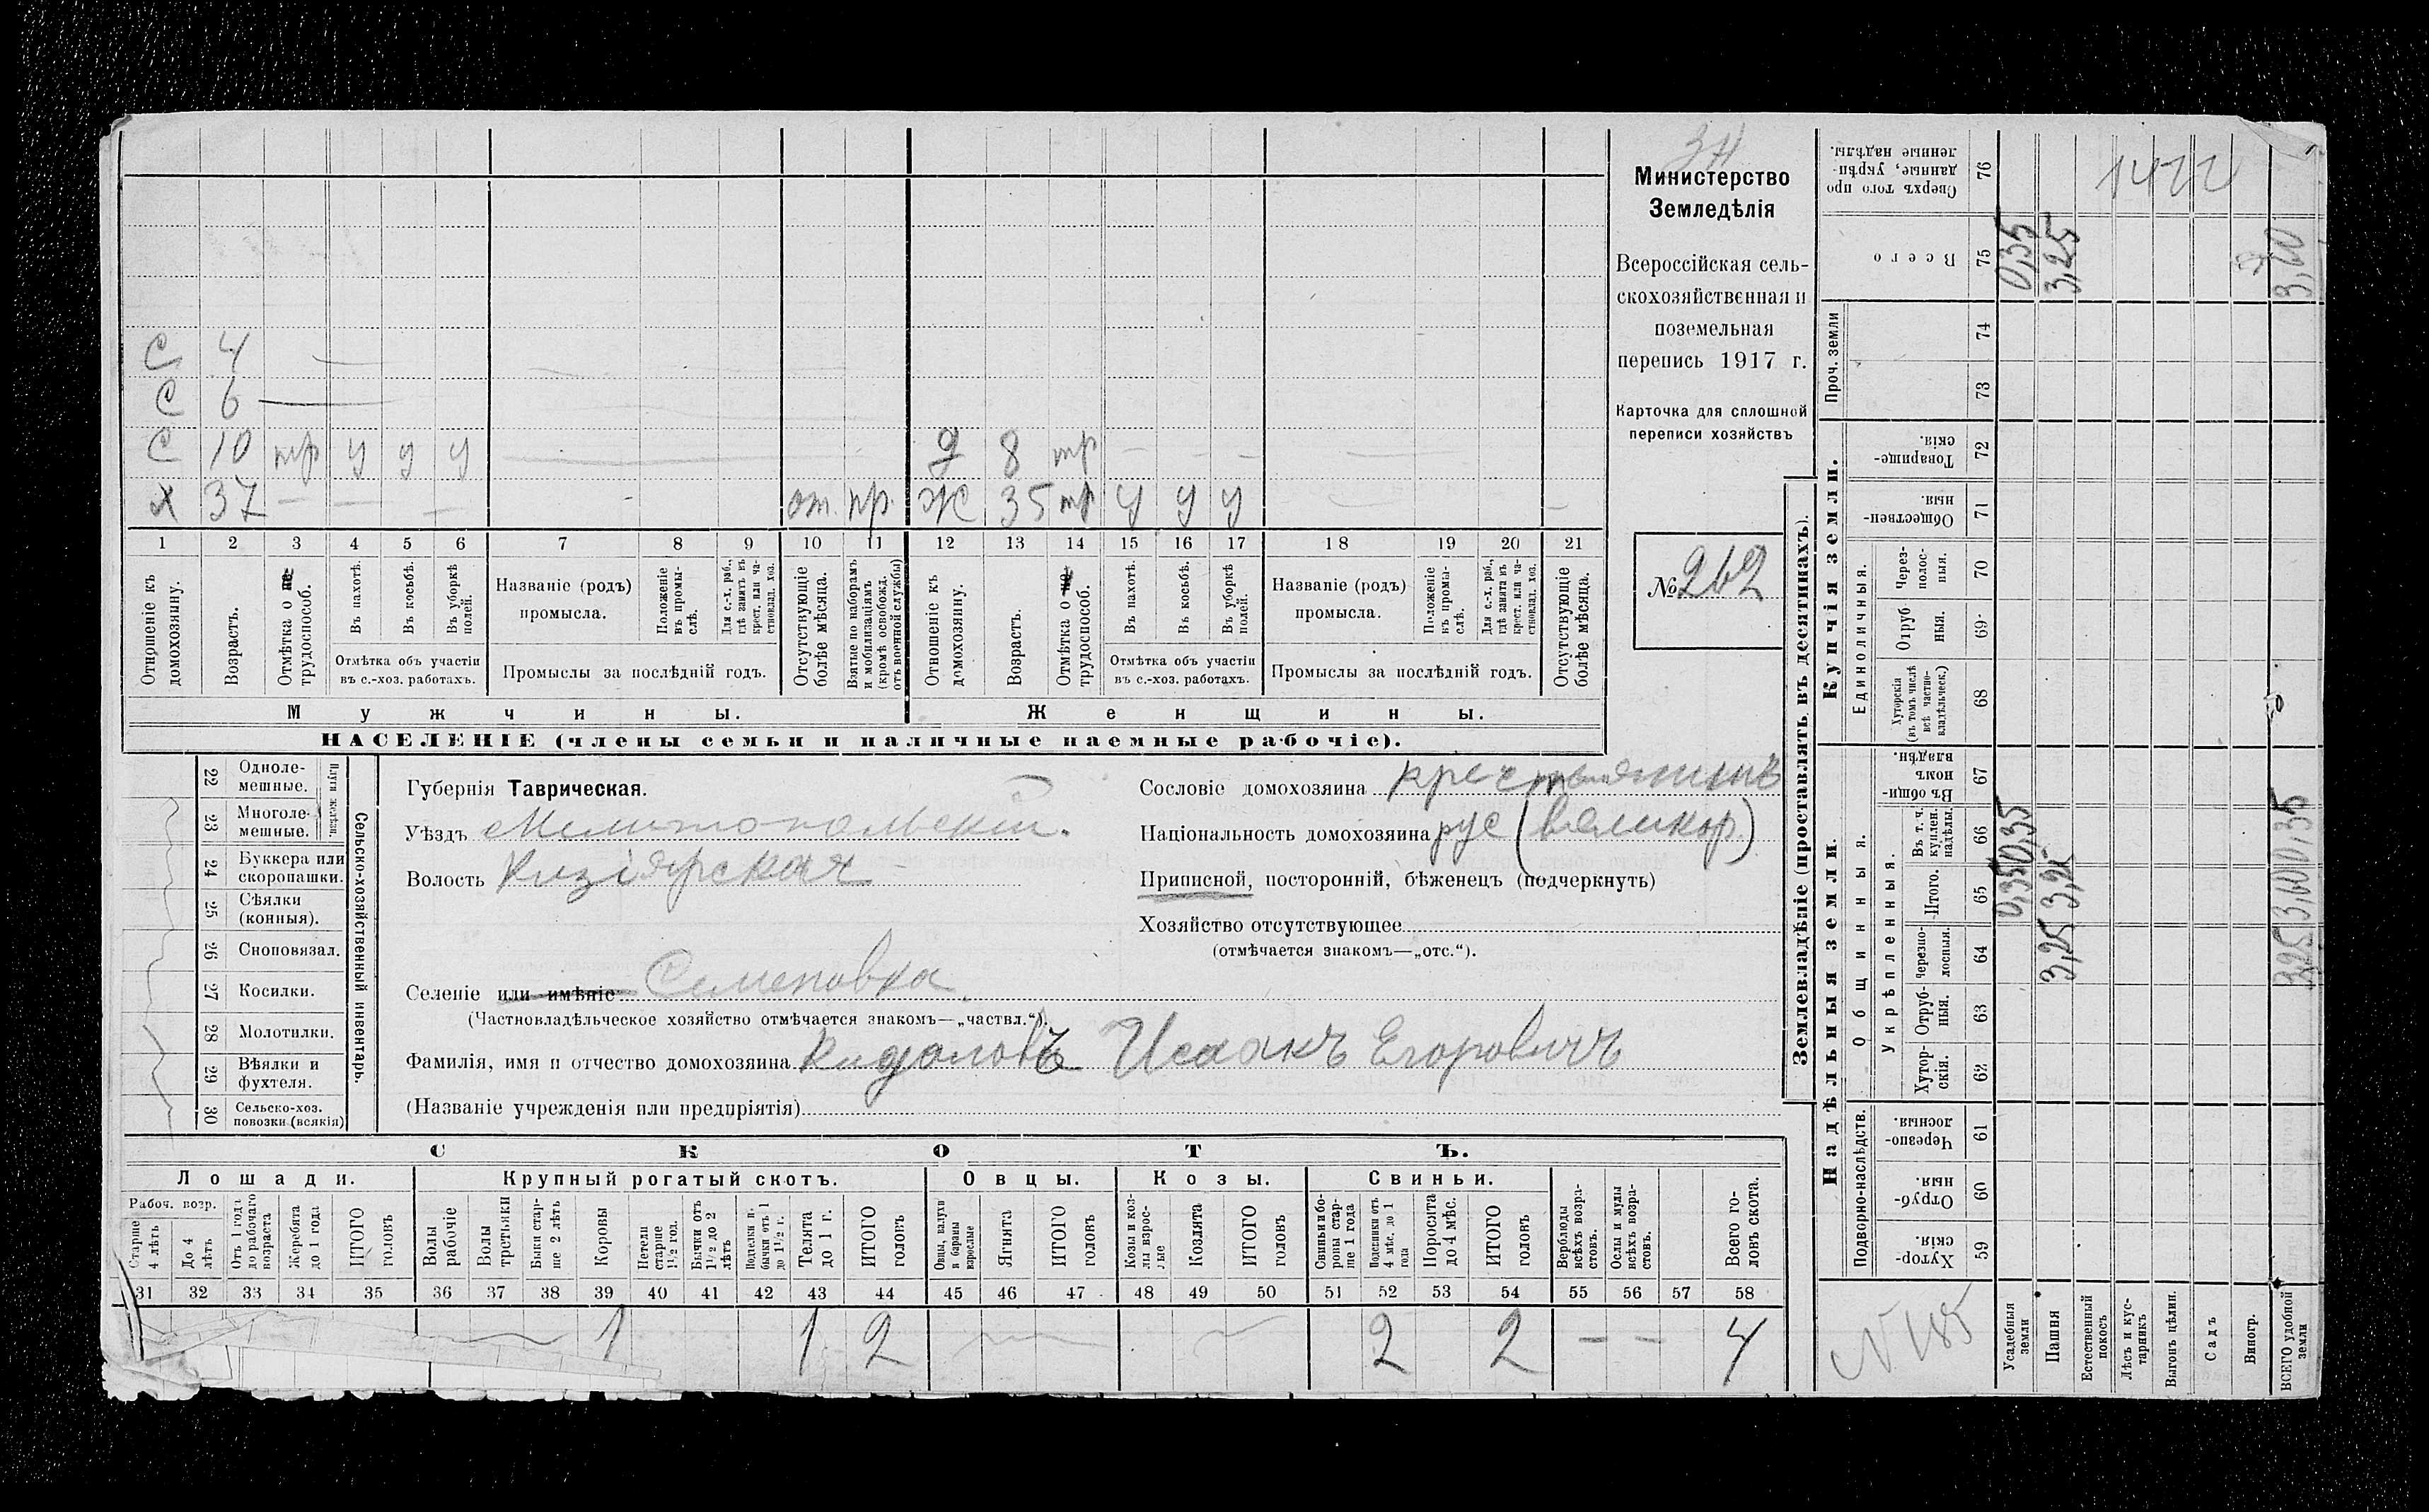 С 4 —
С 6 —
С 10 тр у у у — 9 8 тр — — — —
Х 37 — — — - от. пр. Ж 35 тр у у у — —
1 2 3 4 5 6 7 8 9 10 11 12 13 14 15 16 17 18 19 20 21
Отношеніе къ домохозяину.
Возрастъ.
Отмѣтка о трудоспособ.
Въ пахотѣ.
Въ косьбѣ.
Въ уборкѣ полей.
Отмѣтка объ участіи въ с.-хоз. работахъ.
Названіе (родъ) промысла.
Положеніе въ промыслѣ.
Для с.-х. раб., гдѣ занятъ въ крест. или частновлад. хоз.
Промыслы за послѣдній годъ.
Отсутствующіе болѣе мѣсяца.
Взятые по наборамъ и мобилизаціямъ (кромѣ освобожд. отъ военной службы)
Отношеніе къ домохозяину.
Возрастъ.
Отмѣтка о трудоспособ.
Въ пахотѣ.
Въ косьбѣ.
Въ уборкѣ полей.
Отмѣтка объ участіи въ с.-хоз. работахъ.
Названіе (родъ) промысла.
Положеніе въ промыслѣ.
Для с.-х. раб., гдѣ занятъ въ крест. или частновлад. хоз.
Промыслы за послѣдній годъ.
Отсутствующіе болѣе мѣсяца.
Мужчины.
Женщины.
НАСЕЛЕНІЕ (члены семьи и наличные наемные рабочіе).
Министерство
Земледѣлія
Всероссійская сель-
скохозяйственная и
поземельная
перепись 1917 г.
Карточка для сплошной
переписи хозяйствъ
№ 262
Сельско-хозяйственный инвентарь.
22 Одноле-мешные.
23 Многоле-мешные.
24 Буккера или скоропашки.
25 Сѣялки (конныя).
26 Сноповязал.
27 Косилки.
28 Молотилки.
29 Вѣялки и фухтеля.
30 Сельско-хоз. повозки (всякія)
Губернія Таврическая.
Уѣздъ Мелитопольскій.
Волость Кизіярская
Селеніе или имѣніе Семеновка
(Частновладѣльческое хозяйство отмѣчается знакомъ—„частвл.“).
Фамилія, имя и отчество домохозяина Кидаловъ Исаакъ Егоровичъ
(Названіе учрежденія или предпріятія)
Сословіе домохозяина крестьянинъ
Національность домохозяина рус (великор.)
Приписной, посторонній, бѣженец (подчеркнуть)
Хозяйство отсутствующее
(отмѣчается знакомъ—„отс.“).
СКОТЪ.
Лошади. Крупный рогатый скотъ. Овцы. Козы. Свиньи.
Рабоч. возр.
Старше 4 лѣтъ
До 4 лѣтъ
Отъ 1 года до рабочаго возраста
Жеребята до 1 года
ИТОГО головъ
Волы рабочіе
Волы третьяки
Быки стар-ше 2 лѣтъ
Коровы
Нетели старше 1 1/2 год.
Бычки отъ 1 1/2 до 2 лѣтъ
Телята до 1 г.
ИТОГО головъ
Овцы, валухи и бараны взрослые
Ягнята
ИТОГО головъ
Козы и коз-лы взрос-лые
Козлята
ИТОГО головъ
Свиньи и бо-ровы стар-ше 1 года
Подсвинки отъ 4 мѣс. до 1 года
Поросята до 4 мѣс.
ИТОГО головъ
Верблюды всѣхъ возра-стовъ.
Ослы и мулы всѣхъ возра-стовъ.
Всего го-ловъ скота.
31 32 33 34 35 36 37 38 39 40 41 42 43 44 45 46 47 48 49 50 51 52 53 54 55 56 57 58
1 1 2 2 2 — — 4
Землевладѣніе (проставлять въ десятинахъ).
Надѣльныя земли.
Купчія земли.
Проч. земли
Подворно-наслѣдств.
Общинныя.
Укрѣпленныя.
Единоличныя.
59 Хутор-скія.
60 Отруб-ныя.
61 Черезпо-лосныя.
62 Хутор-скія.
63 Отруб-ныя.
64 Черезпо-лосныя.
65 Итого.
66 Въ т. ч. куплен. надѣлы
67 Въ общи-номъ владѣн.
68 Хуторскія (въ томъ числѣ всѣ частно-владѣльческ.)
69 Отруб ныя.
70 Через-полос-ныя.
71 Обществен-ныя.
72 Товарище-скія.
73
74
75 Всего
76 Сверхъ того про данные, укрѣп-ленные надѣлы.
Усадебныя земли 0,35 0,35 0,35
Пашня 3,25 3,25 3,25
Естественный покосъ
Лѣсъ и кус-тарникъ
Выгонъ цѣлин.
Садъ
Виногр.
ВСЕГО удобной земли 3,25 3,60 0,35 3,60
1422
N 185